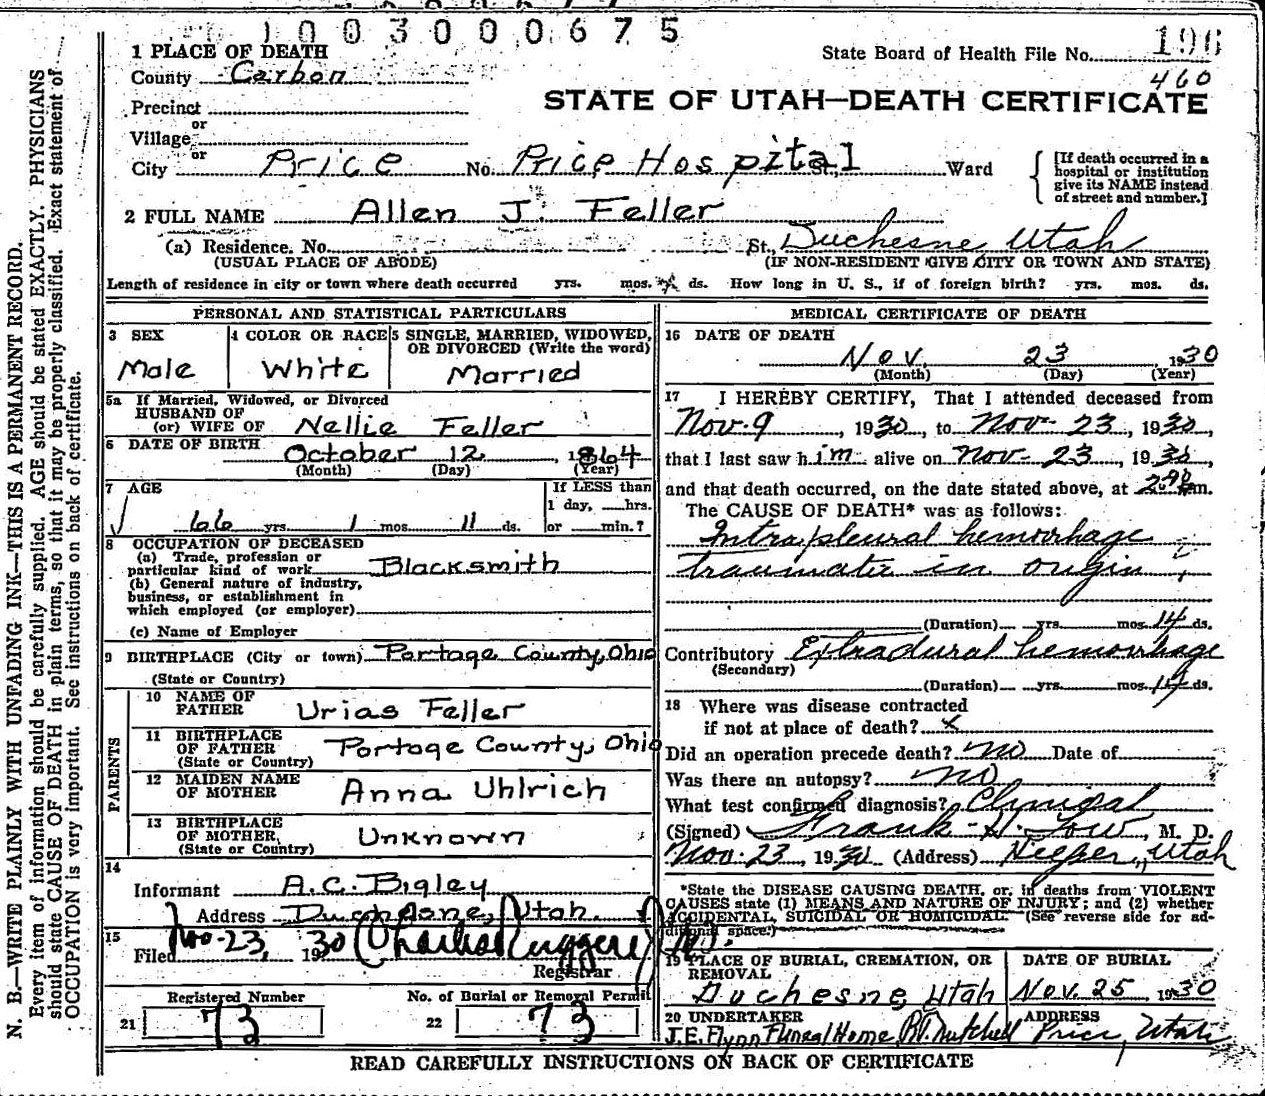 1003000675
1 PLACE OF DEATH
State Board of Health File No. 196
County Carbon
460
STATE OF UTAH—DEATH CERTIFICATE
Precinct
or
Village
or
City Price No. Price Hospital St., Ward
[If death occurred in a
hospital or institution
give its NAME instead
of street and number.]
2 FULL NAME Allen J. Feller
(a) Residence. No. St., Duchesne Utah
(USUAL PLACE OF ABODE) (IF NON-RESIDENT GIVE CITY OR TOWN AND STATE)
Length of residence in city or town where death occurred yrs. mos. ds. How long in U. S., if of foreign birth? yrs. mos. ds.
PERSONAL AND STATISTICAL PARTICULARS
3 SEX
Male
4 COLOR OR RACE
White
5 SINGLE, MARRIED, WIDOWED,
OR DIVORCED (Write the word)
Married
5a If Married, Widowed, or Divorced
HUSBAND OF
(or) WIFE OF Nellie Feller
6 DATE OF BIRTH
October 12, 1864
(Month) (Day) (Year)
7 AGE
66 yrs. 1 mos. 11 ds.
If LESS than
1 day, hrs.
or min.?
8 OCCUPATION OF DECEASED
(a) Trade, profession or
particular kind of work Blacksmith
(b) General nature of industry,
business, or establishment in
which employed (or employer)
(c) Name of Employer
9 BIRTHPLACE (City or town) Portage County, Ohio
(State or Country)
PARENTS
10 NAME OF
FATHER Urias Feller
11 BIRTHPLACE
OF FATHER Portage County, Ohio
(State or Country)
12 MAIDEN NAME
OF MOTHER Anna Uhlrich
13 BIRTHPLACE
OF MOTHER, Unknown
(State or Country)
14
Informant A.C. Bigley
Address Duchesne, Utah.
15
Filed Nov-23, 1930
Registrar
Registered Number
21 73
No. of Burial or Removal Permit
22 73
MEDICAL CERTIFICATE OF DEATH
16 DATE OF DEATH
Nov. 23 1930
(Month) (Day) (Year)
17 I HEREBY CERTIFY, That I attended deceased from
Nov-9, 1930, to Nov-23, 1930,
that I last saw him alive on Nov-23, 1930,
and that death occurred, on the date stated above, at m.
The CAUSE OF DEATH* was as follows:
Intrapleural hemorrhage
traumatic in origin
(Duration) yrs. mos. 14 ds.
Contributory Extradural hemorrhage
(Secondary)
(Duration) yrs. mos. 14 ds.
18 Where was disease contracted
if not at place of death? x
Did an operation precede death? no Date of
Was there an autopsy? no
What test confirmed diagnosis? Clinical
(Signed) Frank H. Low, M. D.
Nov-23, 1930 (Address) Helper, Utah
*State the DISEASE CAUSING DEATH, or, in deaths from VIOLENT
CAUSES state (1) MEANS AND NATURE OF INJURY; and (2) whether
ACCIDENTAL, SUICIDAL OR HOMICIDAL. (See reverse side for ad-
ditional space.)
19 PLACE OF BURIAL, CREMATION, OR
REMOVAL
Duchesne, Utah
DATE OF BURIAL
Nov. 25, 1930
20 UNDERTAKER
J.E. Flynn Funeral Home, Mitchell
ADDRESS
Price, Utah
READ CAREFULLY INSTRUCTIONS ON BACK OF CERTIFICATE
N. B.—WRITE PLAINLY WITH UNFADING INK—THIS IS A PERMANENT RECORD.
Every item of information should be carefully supplied. AGE should be stated EXACTLY. PHYSICIANS
should state CAUSE OF DEATH in plain terms, so that it may be properly classified. Exact statement of
OCCUPATION is very important. See instructions on back of certificate.